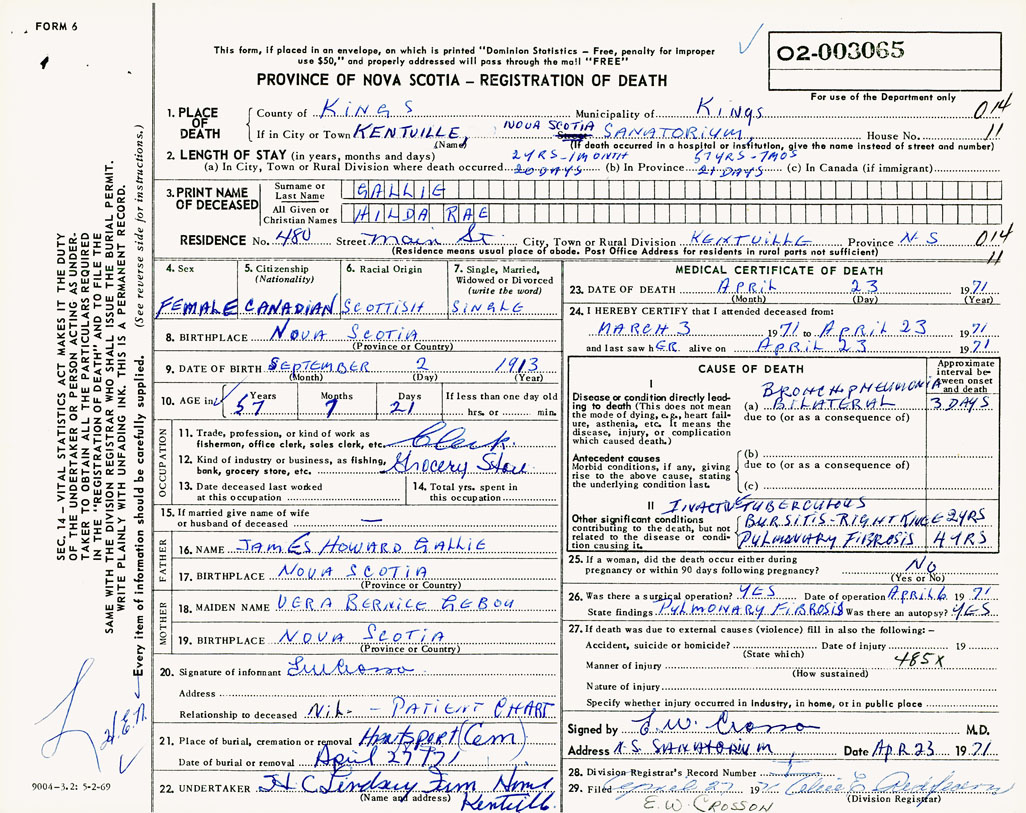 FORM 6
This form, if placed in an envelope, on which is printed "Dominion Statistics – Free, penalty for improper
use $50," and properly addressed will pass through the mail "FREE"
PROVINCE OF NOVA SCOTIA – REGISTRATION OF DEATH
02-003065
For use of the Department only
1. PLACE OF DEATH
County of KINGS Municipality of KINGS 014
If in City or Town KENTVILLE, NOVA SCOTIA SANATORIUM, House No. 11
(Name) (If death occurred in a hospital or institution, give the name instead of street and number)
2. LENGTH OF STAY (in years, months and days) 2 YRS-1 MONTH 57 YRS-7 MOS
(a) In City, Town or Rural Division where death occurred 20 DAYS (b) In Province 21 DAYS (c) In Canada (if immigrant)
3. PRINT NAME OF DECEASED
Surname or Last Name GALLIE
All Given or Christian Names HILDA RAE
RESIDENCE No. 480 Street Main St. City, Town or Rural Division KENTVILLE Province N S 014
(Residence means usual place of abode. Post Office Address for residents in rural parts not sufficient) 11
4. Sex
FEMALE
5. Citizenship (Nationality)
CANADIAN
6. Racial Origin
SCOTTISH
7. Single, Married, Widowed or Divorced (write the word)
SINGLE
8. BIRTHPLACE NOVA SCOTIA
(Province or Country)
9. DATE OF BIRTH SEPTEMBER 2 1913
(Month) (Day) (Year)
10. AGE in Years Months Days If less than one day old
57 7 21 hrs. or min.
OCCUPATION
11. Trade, profession, or kind of work as
fishermon, office clerk, sales clerk, etc. Clerk
12. Kind of industry or business, as fishing,
bank, grocery store, etc. Grocery Store
13. Date deceased last worked at this occupation
14. Total yrs. spent in this occupation
15. If married give name of wife
or husband of deceased —
FATHER
16. NAME JAMES HOWARD GALLIE
17. BIRTHPLACE NOVA SCOTIA
(Province or Country)
MOTHER
18. MAIDEN NAME VERA BERNICE
19. BIRTHPLACE NOVA SCOTIA
(Province or Country)
20. Signature of informant
Address
Relationship to deceased Nil - PATIENT CHART
21. Place of burial, cremation or removal Hantsport (Cem)
Date of burial or removal April 27/71
22. UNDERTAKER H C Lindsay Fun Home
(Name and address) Kentville
MEDICAL CERTIFICATE OF DEATH
23. DATE OF DEATH APRIL 23 1971
(Month) (Day) (Year)
24. I HEREBY CERTIFY that I attended deceased from:
MARCH 3 1971 to APRIL 23 1971
and last saw hER alive on APRIL 23 1971
CAUSE OF DEATH
Approximate interval between onset and death
I
Disease or condition directly leading to death (This does not
mean the mode of dying, e.g., heart failure, asthenia, etc. It means the
disease, injury, or complication
which caused death.)
BRONCHPNEUMONIA
(a) BILATERAL 3 DAYS
due to (or as a consequence of)
Antecedent causes
Morbid conditions, if any, giving
rise to the above cause, stating
the underlying condition last.
(b)
due to (or as a consequence of)
(c)
II
Other significant conditions
contributing to the death, but not
related to the disease or condition causing it.
INACTIVE TUBERCULOUS
BURSITIS-RIGHT KNEE 2 YRS
PULMONARY FIBROSIS 4 YRS
25. If a woman, did the death occur either during
pregnancy or within 90 days following pregnancy? NO
(Yes or No)
26. Was there a surgical operation? YES Date of operation APRIL 6 1971
State findings PULMONARY FIBROSIS Was there an autopsy? YES
27. If death was due to external causes (violence) fill in also the following: –
Accident, suicide or homicide? Date of injury 19
(State which) 485X
Manner of injury
(How sustained)
Nature of injury
Specify whether injury occurred in Industry, in home, or in public place
Signed by E. W. Crosson M.D.
Address N. S SANATORIUM, Date APR 23 1971
28. Division Registrar's Record Number
29. Filed April 27 1971
(Division Registrar)
E. W. CROSSON
SEC. 14 – VITAL STATISTICS ACT MAKES IT THE DUTY
OF THE UNDERTAKER OR PERSON ACTING AS UNDER-
TAKER TO OBTAIN ALL THE PARTICULARS REQUIRED
IN THE "REGISTRATION OF DEATH" AND TO FILE THE
SAME WITH THE DIVISION REGISTRAR WHO SHALL ISSUE THE BURIAL PERMIT.
WRITE PLAINLY WITH UNFADING INK. THIS IS A PERMANENT RECORD.
Every item of information should be carefully supplied. (See reverse side for instructions.)
9004-3.2: 5-2-69